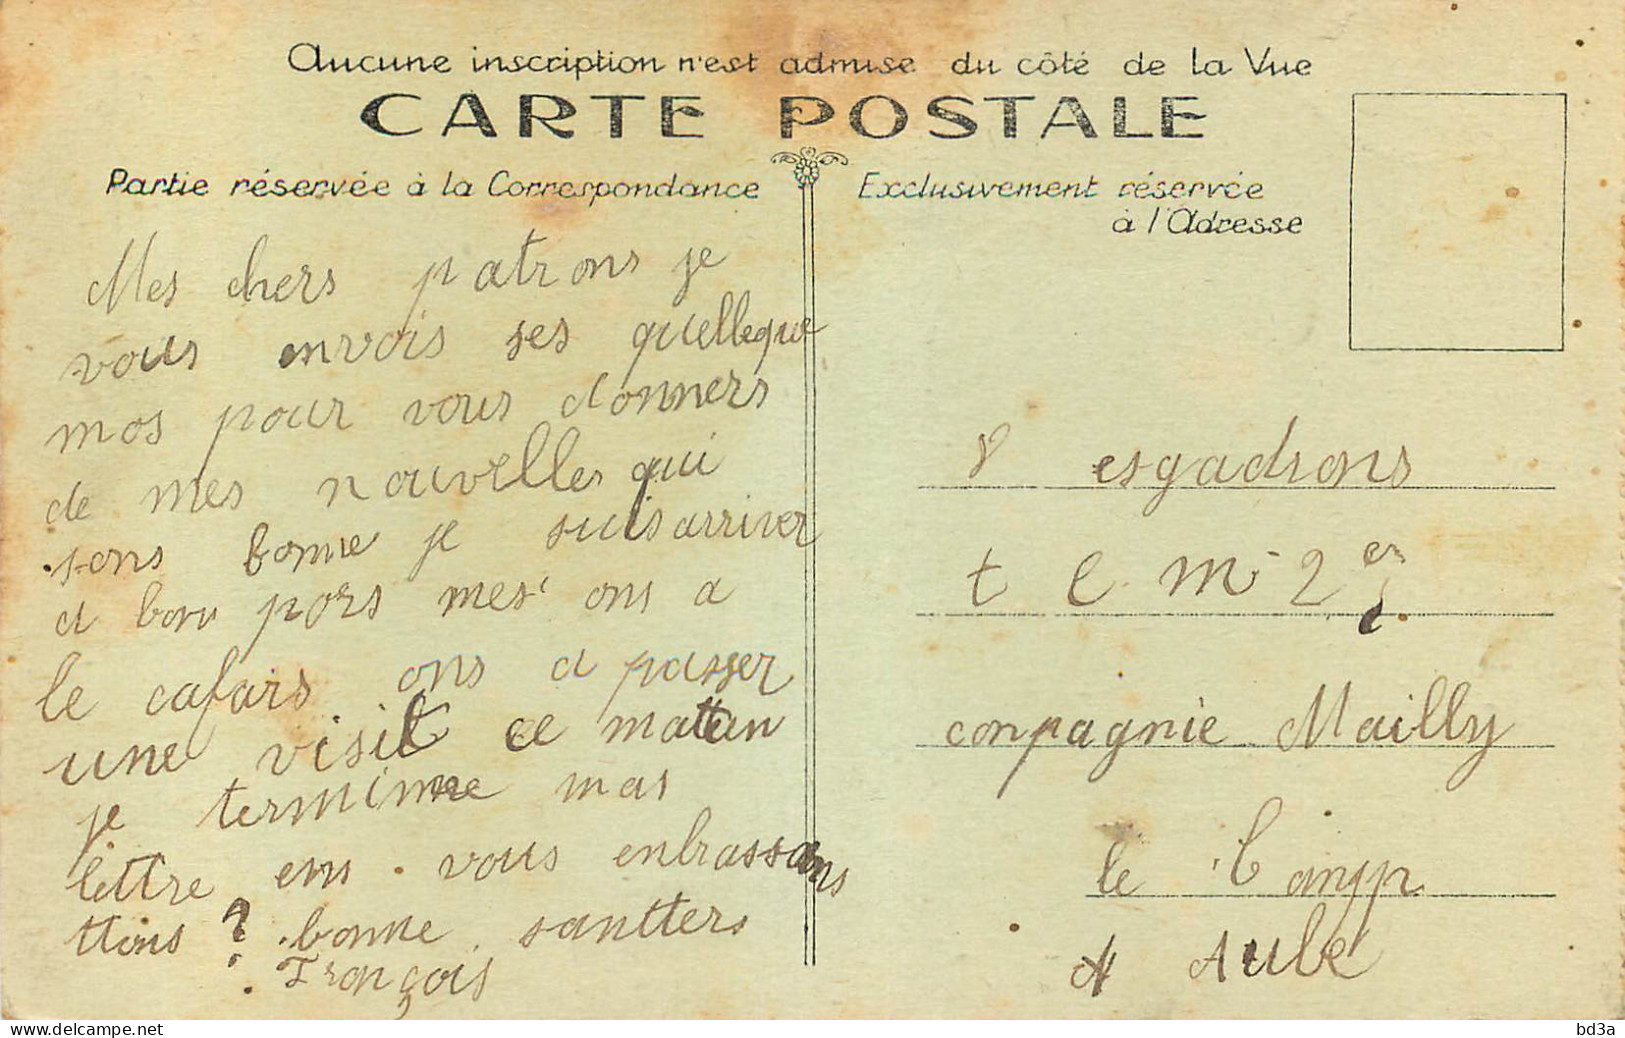 Aucune inscription n'est admise du côté de la Vue
CARTE POSTALE
Partie réservée à la Correspondance
Exclusivement réservée
à l'Adresse
Mes chers patrons je
vous envois ses quelleque
mos pour vous donners
de mes nouvelles qui
sons bonne je suis arriver
a bon pors mes ons a
le cafars ons a passer
une visit ce mattin
je termimne mas
lettre ens vous enbrassans
ttous ? bonne santters
François
8 esgadrons
t C m 2 es
conpagnie Mailly
le Camp
A Aube
delcampe.net
bd3a